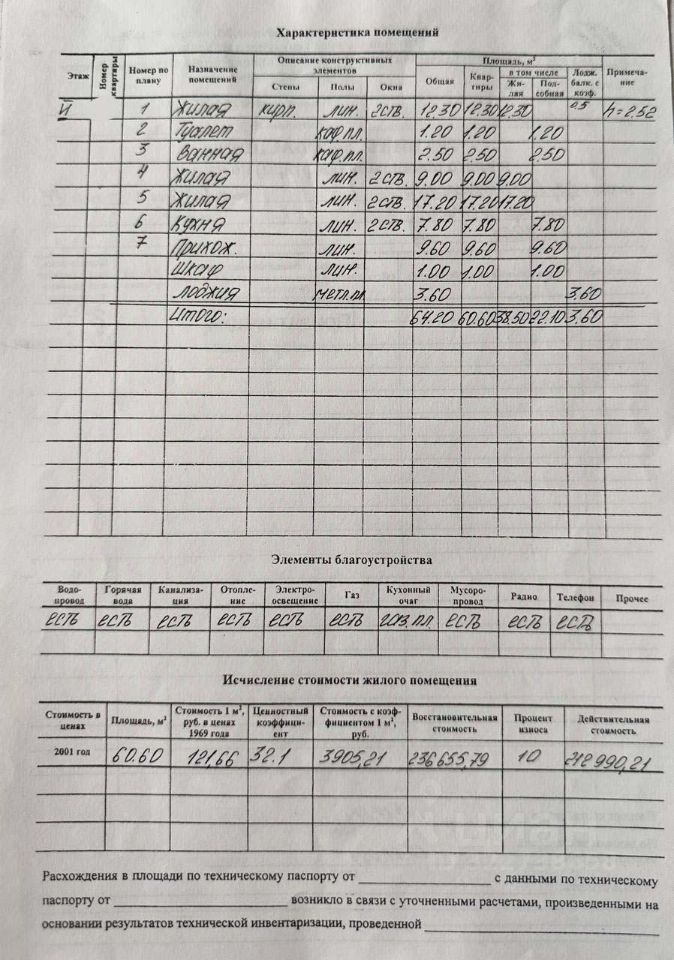 Характеристика помещений
Этаж Номер квартиры Номер по плану Назначение помещений Описание конструктивных элементов Площадь, м²  Примеча-ние
Стены Полы Окна Общая Квар-тиры в том числе Лодж. балк. с коэф.
Жи-лая Под-собная
1 Жилая кирп. лин. 2ств. 12.30 12.30 12.30 0.5 h=2.52
2 Туалет каф.пл. 1.20 1.20 1.20
3 Ванная каф.пл. 2.50 2.50 2.50
4 Жилая лин. 2ств. 9.00 9.00 9.00
5 Жилая лин. 2ств. 17.20 17.20 17.20
6 Кухня лин. 2ств. 7.80 7.80 7.80
7 Прихож. лин. 9.60 9.60 9.60
Шкаф лин. 1.00 1.00 1.00
Лоджия метл.пл. 3.60 3.60
Итого: 64.20 60.60 38.50 22.10 3.60
Элементы благоустройства
Водо-провод Горячая вода Канализа-ция Отопле-ние Электро-освещение Газ Кухонный очаг Мусоро-провод Радио Телефон Прочее
есть есть есть есть есть есть газ.пл. есть есть есть
Исчисление стоимости жилого помещения
Стоимость в ценах Площадь, м² Стоимость 1 м², руб. в ценах 1969 года Ценностный коэффици-ент Стоимость с коэф-фициентом 1 м², руб. Восстановительная стоимость Процент износа Действительная стоимость
2001 год 60.60 121,66 32.1 3905,21 236655,79 10 212990,21
Расхождения в площади по техническому паспорту от с данными по техническому
паспорту от возникло в связи с уточненными расчетами, произведенными на
основании результатов технической инвентаризации, проведенной